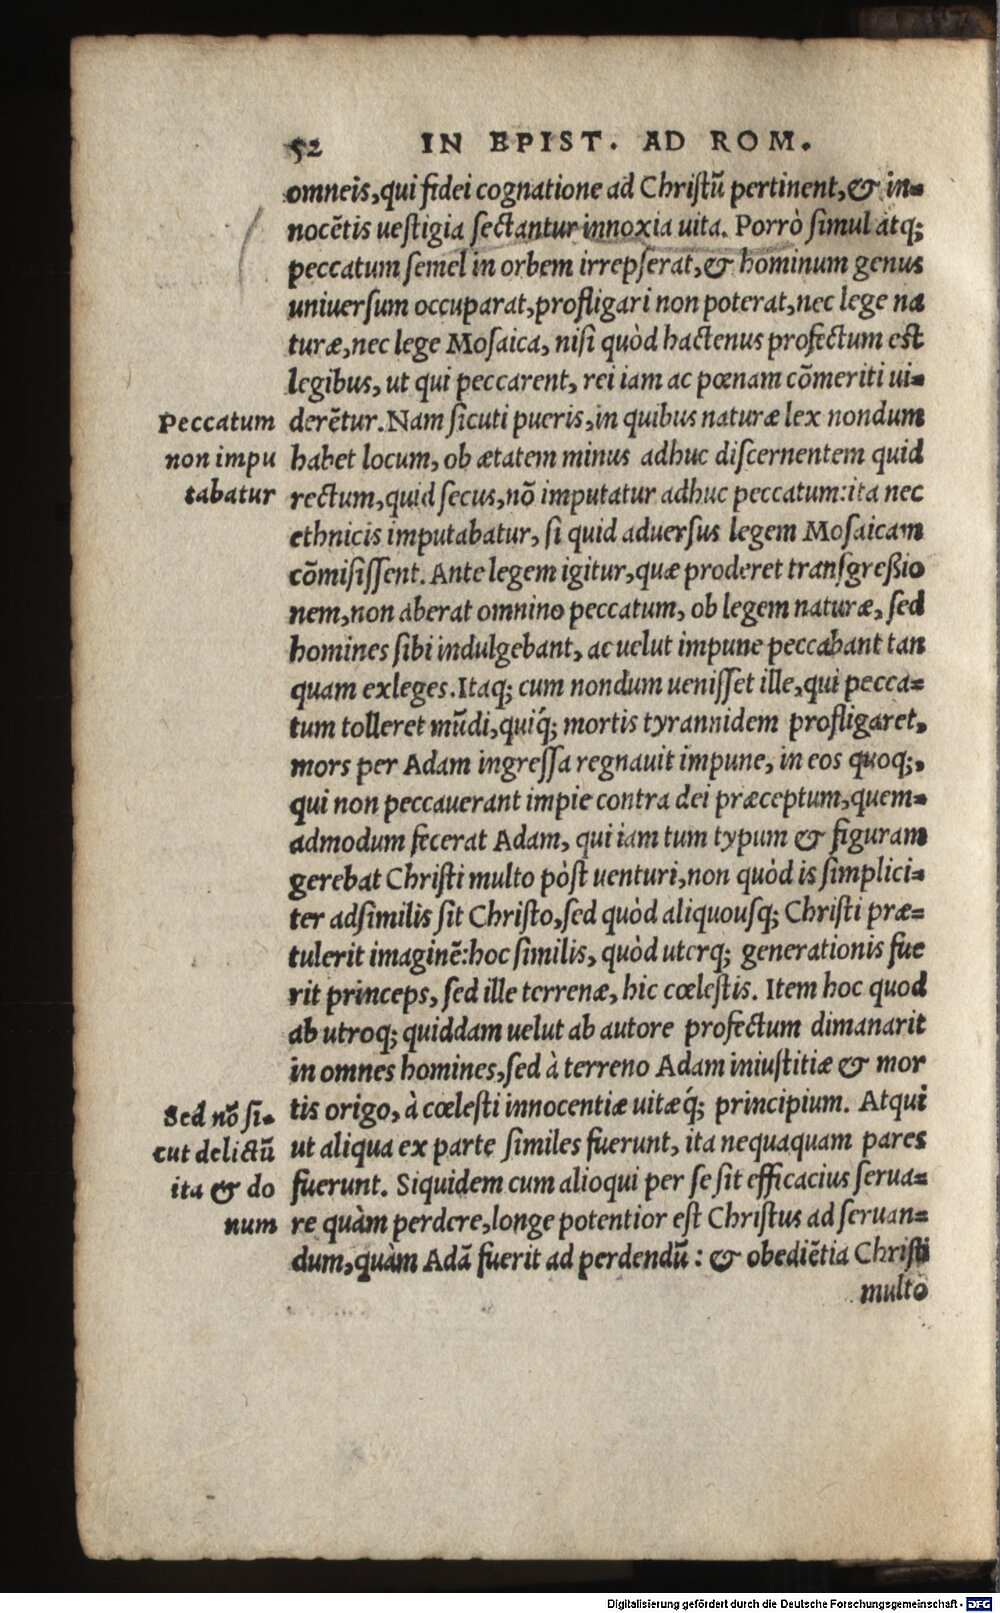 52 IN EPIST. AD ROM.
omneis,qui fidei cognatione ad Chriſtū pertinent,& in=
nocētis ueſtigia ſectantur innoxia uita. Porrò ſimul atq;
peccatum ſemel in orbem irrepſerat,& hominum genus
uniuerſum occuparat,profligari non poterat,nec lege na
turæ,nec lege Moſaica, niſi quòd hactenus profectum eſt
legibus, ut qui peccarent, rei iam ac pœnam cōmeriti ui=
derētur.Nam ſicuti pueris,in quibus naturæ lex nondum
habet locum, ob ætatem minus adhuc diſcernentem quid
rectum,quid ſecus,nō imputatur adhuc peccatum:ita nec
ethnicis imputabatur, ſi quid aduerſus legem Moſaicam
cōmiſiſſent. Ante legem igitur,quæ proderet tranſgreßio
nem,non aberat omnino peccatum, ob legem naturæ, ſed
homines ſibi indulgebant, ac uelut impune peccabant tan
quam exleges.Itaq; cum nondum ueniſſet ille,qui pecca=
tum tolleret mūdi,quiq́; mortis tyrannidem profligaret,
mors per Adam ingreſſa regnauit impune, in eos quoq;,
qui non peccauerant impie contra dei præceptum,quem=
admodum fecerat Adam, qui iam tum typum & figuram
gerebat Chriſti multo pòſt uenturi,non quòd is ſimplici=
ter adſimilis ſit Chriſto,ſed quòd aliquouſq; Chriſti præ=
tulerit imaginē:hoc ſimilis, quòd uterq; generationis fue
rit princeps, ſed ille terrenæ, hic cœleſtis. Item hoc quod
ab utroq; quiddam uelut ab autore profectum dimanarit
in omnes homines,ſed à terreno Adam iniuſtitiæ & mor
tis origo, à cœleſti innocentiæ uitæq́; principium. Atqui
ut aliqua ex parte ſimiles fuerunt, ita nequaquam pares
fuerunt. Siquidem cum alioqui per ſe ſit efficacius ſerua=
re quàm perdere,longe potentior eſt Chriſtus ad ſeruan=
dum,quàm Adā fuerit ad perdendū : & obediētia Chriſti
multo
Peccatum
non impu
tabatur
Sed nō ſi=
cut delictū
ita & do
num
Digitalisierung gefördert durch die Deutsche Forschungsgemeinschaft - DFG